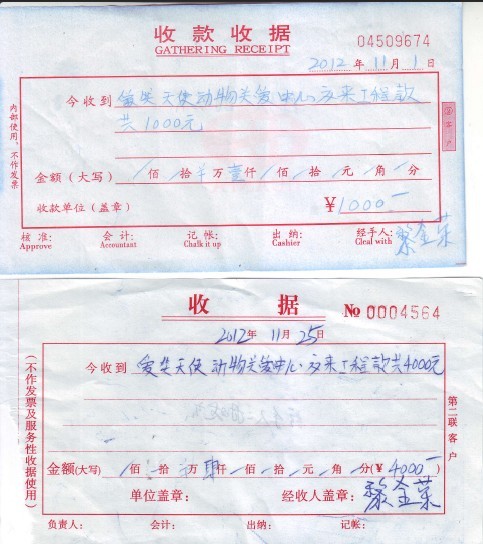 收款收据
GATHERING RECEIPT
04509674
2012年11月1日
今收到 爱失天使动物关爱中心交来工程款
共1000元
金额（大写） 佰 拾 万壹仟 佰 拾 元 角 分
收款单位（盖章） ¥1000—
核准: 会计: 记帐: 出纳: 经手人: 黎金荣
Approve Accountant Chalk it up Cashier Cleal with
内部使用，不作发票
②客户
收据 No 0004564
2012年11月25日
今收到 爱失天使动物关爱中心交来工程款共4000元
金额(大写) 佰 拾 万肆仟 佰 拾 元 角 分(¥4000—)
单位盖章: 经收人盖章: 黎金荣
负责人: 会计: 出纳: 记帐:
(不作发票及服务性收据使用)
第二联客户